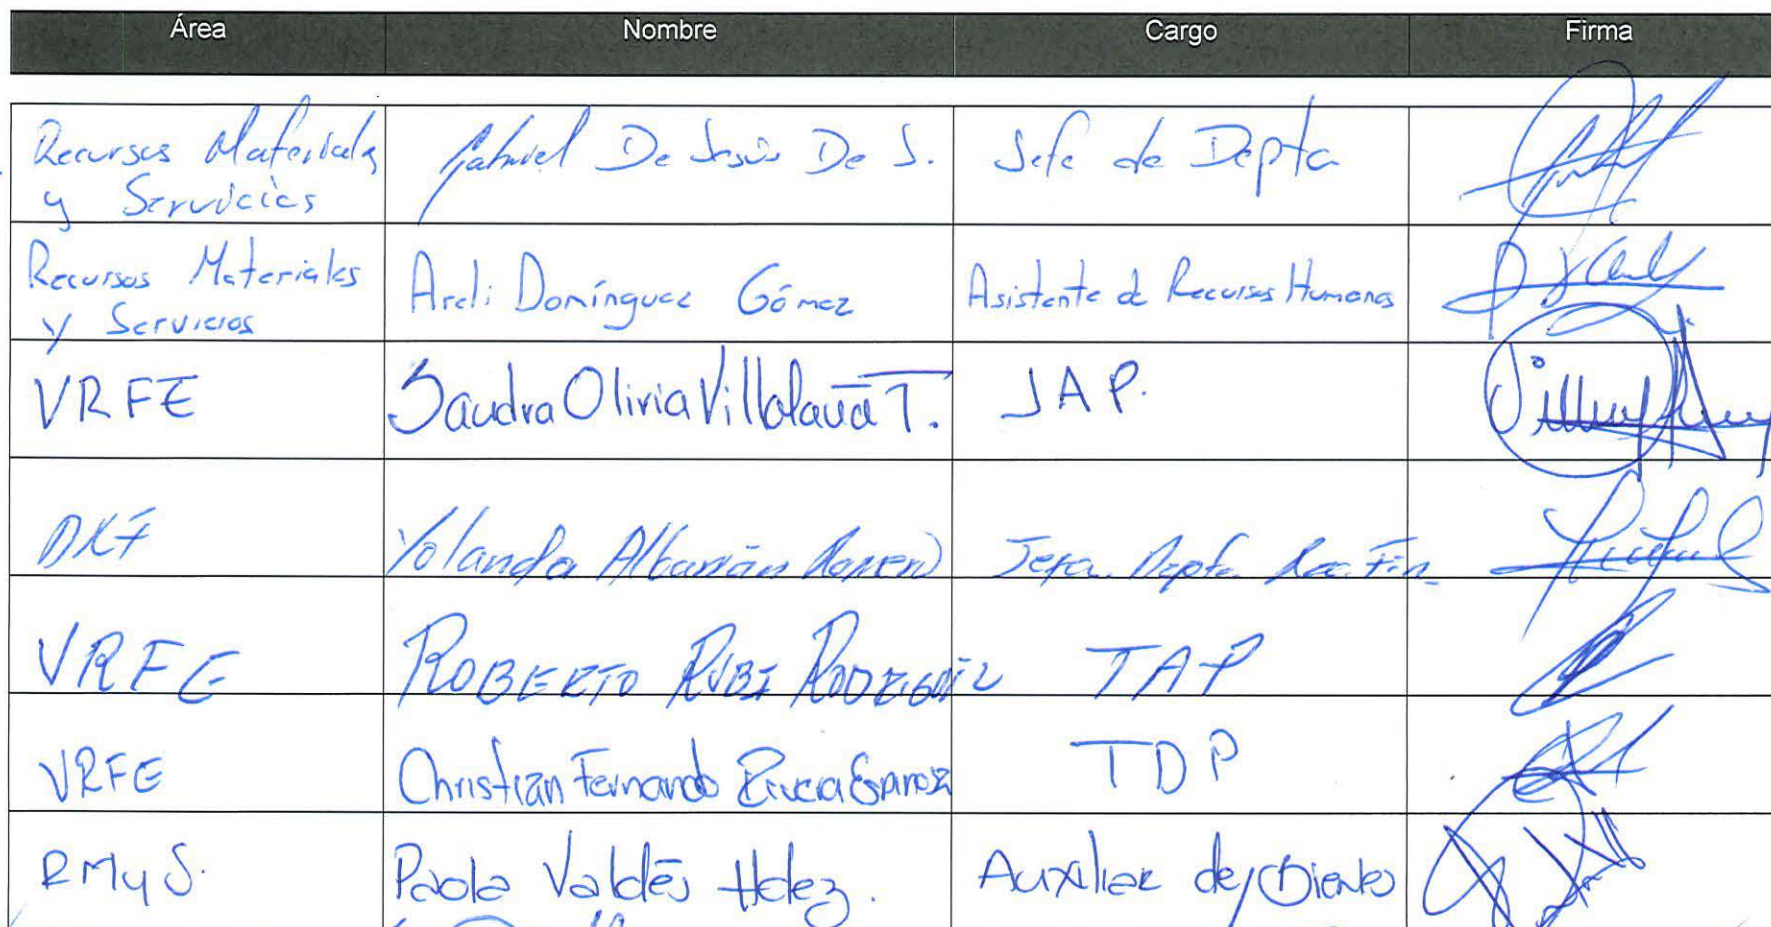 Área Nombre Cargo Firma
Recursos Materiales Gabriel De Jesús De J. Jefe de Depto
y Servicios
Recursos Materiales Areli Domínguez Gómez Asistente de Recursos Humanos
y Servicios
VRFE Sandra Olivia Villalava T. JAP.
Yolanda Albarrán Jefa. Depto. Rec. Fin.
VRFE ROBERTO RUBI RODRIGUEZ TAP
VRFE Christian Fernando Rivera Espinoza TDP
RMyS. Paola Valdés Hdez. Auxiliar de Bienes